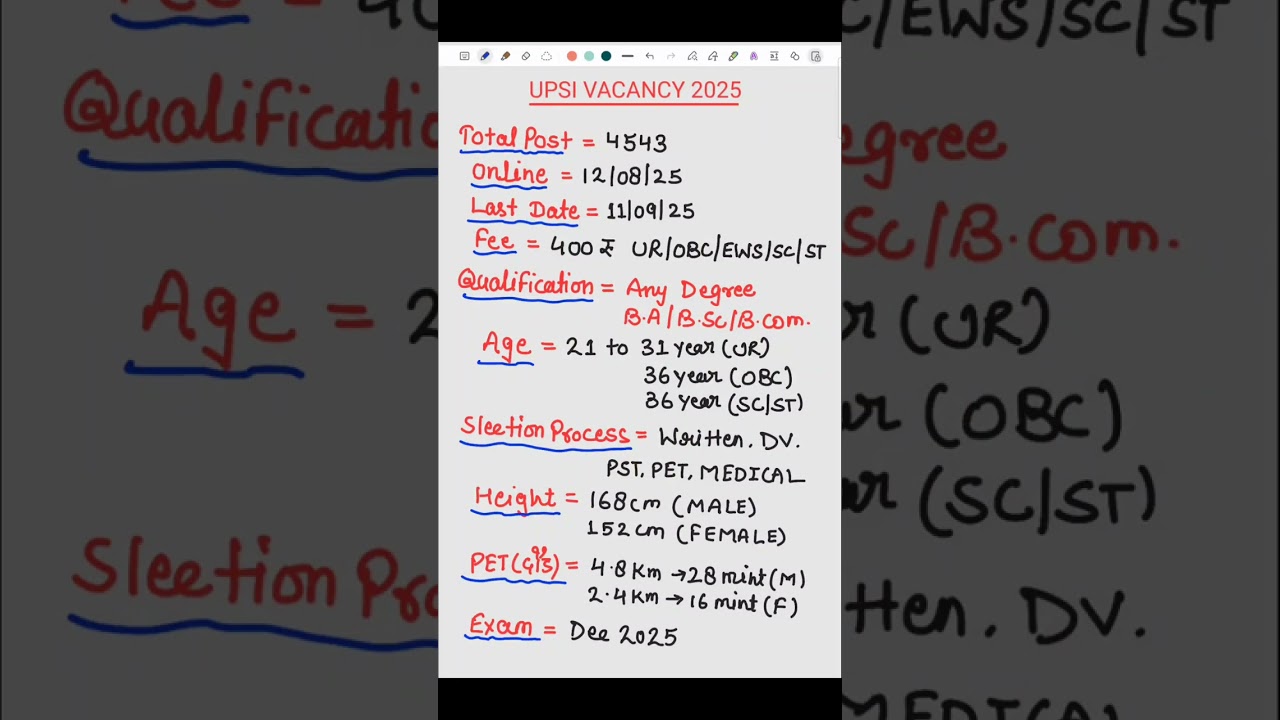 UPSI VACANCY 2025
Total Post = 4543
Online = 12/08/25
Last Date = 11/09/25
Fee = 400 ₹ UR/OBC/EWS/SC/ST
Qualification = Any Degree
B.A/B.Sc/B.com.
Age = 21 to 31 year (UR)
36 year (OBC)
36 year (SC/ST)
Sleetion Process = Written. DV.
PST, PET, MEDICAL
Height = 168cm (MALE)
152cm (FEMALE)
PET(दौड़) = 4.8 Km → 28 mint (M)
2.4 Km → 16 mint (F)
Exam = Dee 2025